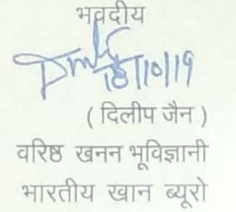 भवदीय
18/10/19
( दिलीप जैन )
वरिष्ठ खनन भूविज्ञानी
भारतीय खान ब्यूरो